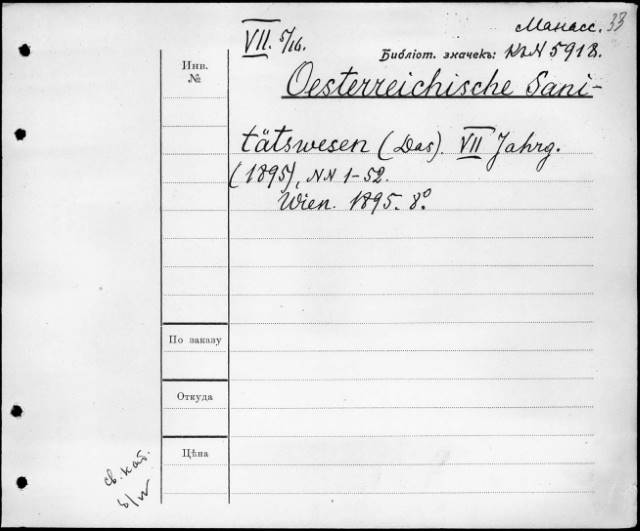 Манасс. 33
VII. 5/16.
Библіот. значекъ: NN 5918.
Инв.
№
Oesterreichische Sani-
tätswesen (Das). VII Jahrg.
(1895), NN 1-52.
Wien. 1895. 8°.
По заказу
Откуда
Цѣна
св. кат.